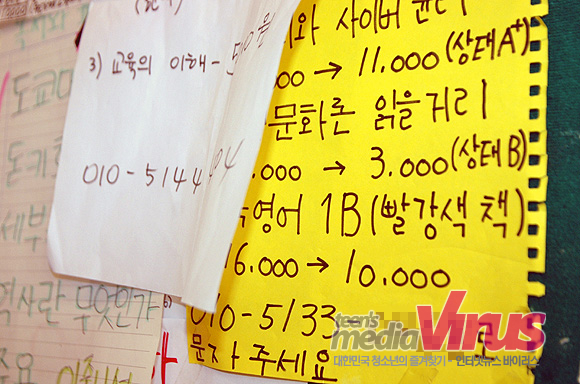 3) 교육의 이해 -
010-5144
사이버 윤리
→ 11.000 (상태 A+)
문화론 읽을거리
.000 → 3.000 (상태 B)
영어 1B (빨강색 책)
16.000 → 10.000
010-5133-
문자 주세요
세부
역사란 무엇인가
teen's
media Virus
대한민국 청소년의 즐겨찾기 - 인터넷뉴스 바이러스